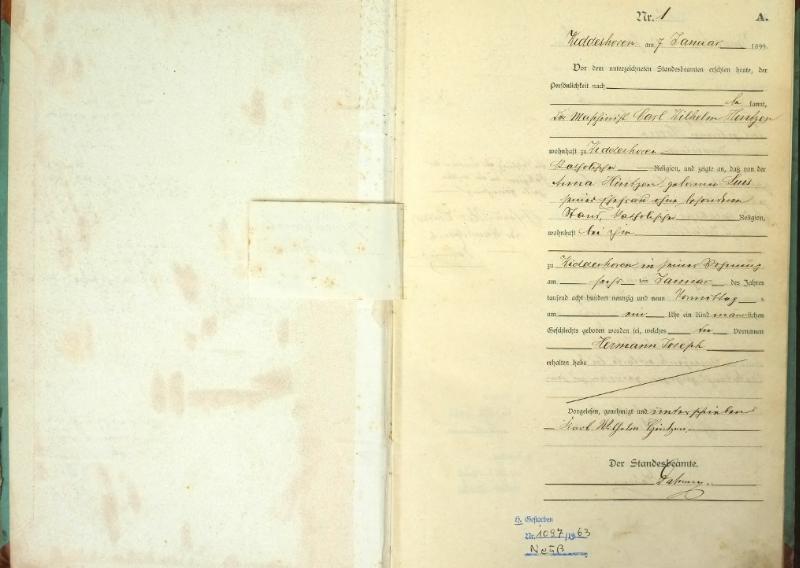 Nr. 1 A.
am 7 Januar 1899
Vor dem unterzeichneten Standesbeamten erschien heute, der
Persönlichkeit nach
kannt,
Der Maschinist Carl Wilhelm Hintzen
wohnhaft zu
katholischer Religion, und zeigte an, daß von der
Anna Hintzen geborenen
seiner Ehefrau ohne besonderen
Stand, katholischer Religion,
wohnhaft bei ihm
zu in seiner Wohnung
am sechs ten Januar des Jahres
tausend acht hundert neunzig und neun Vormittag s
um ein Uhr ein Kind männlichen
Geschlechts geboren worden sei, welches die Vornamen
Hermann Joseph
erhalten habe
Vorgelesen, genehmigt und unterschrieben
Wilhelm Hintzen
Der Standesbeamte.
H. Gestorben
Nr. 1087/1963
Neuß